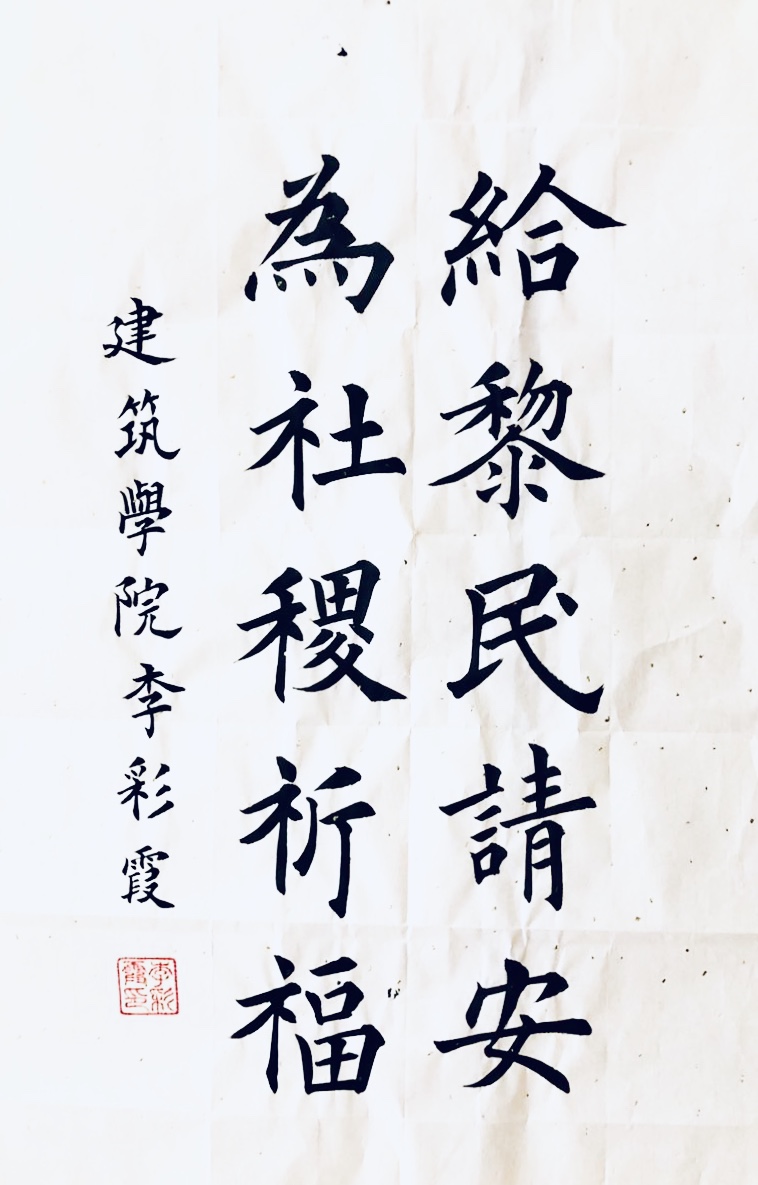 給黎民請安
為社稷祈福
建筑學院李彩霞
李彩霞印